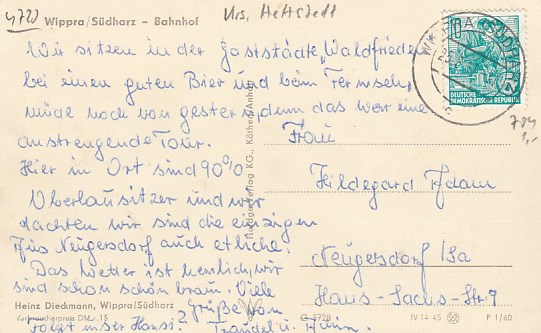 4720
Wippra/Südharz – Bahnhof
Krs. Hettstedt
Wir sitzen in der Gaststädte „Waldfrieden“
bei einem guten Bier und beim Fernsehn,
müde noch von gestern, denn das war eine
anstrengende Tour.
Hier in Ort sind 90%
Oberlausitzer und wir
dachten wir sind die einzigen
Aus Neugersdorf auch etliche.
Das Wetter ist herrlich, wir
sind schon schön braun. Viele
Grüße von
Heinz Dieckmann, Wippra/Südharz
Verbraucherpreis DM -,15
10
DEUTSCHE
DEMOKRATISCHE REPUBLIK
WIPPRA (SÜDHARZ)
Frau
Hildegard Adam
Neugersdorf /Sa
Hans-Sachs-Str. 9
IV 14 45
P 1/60